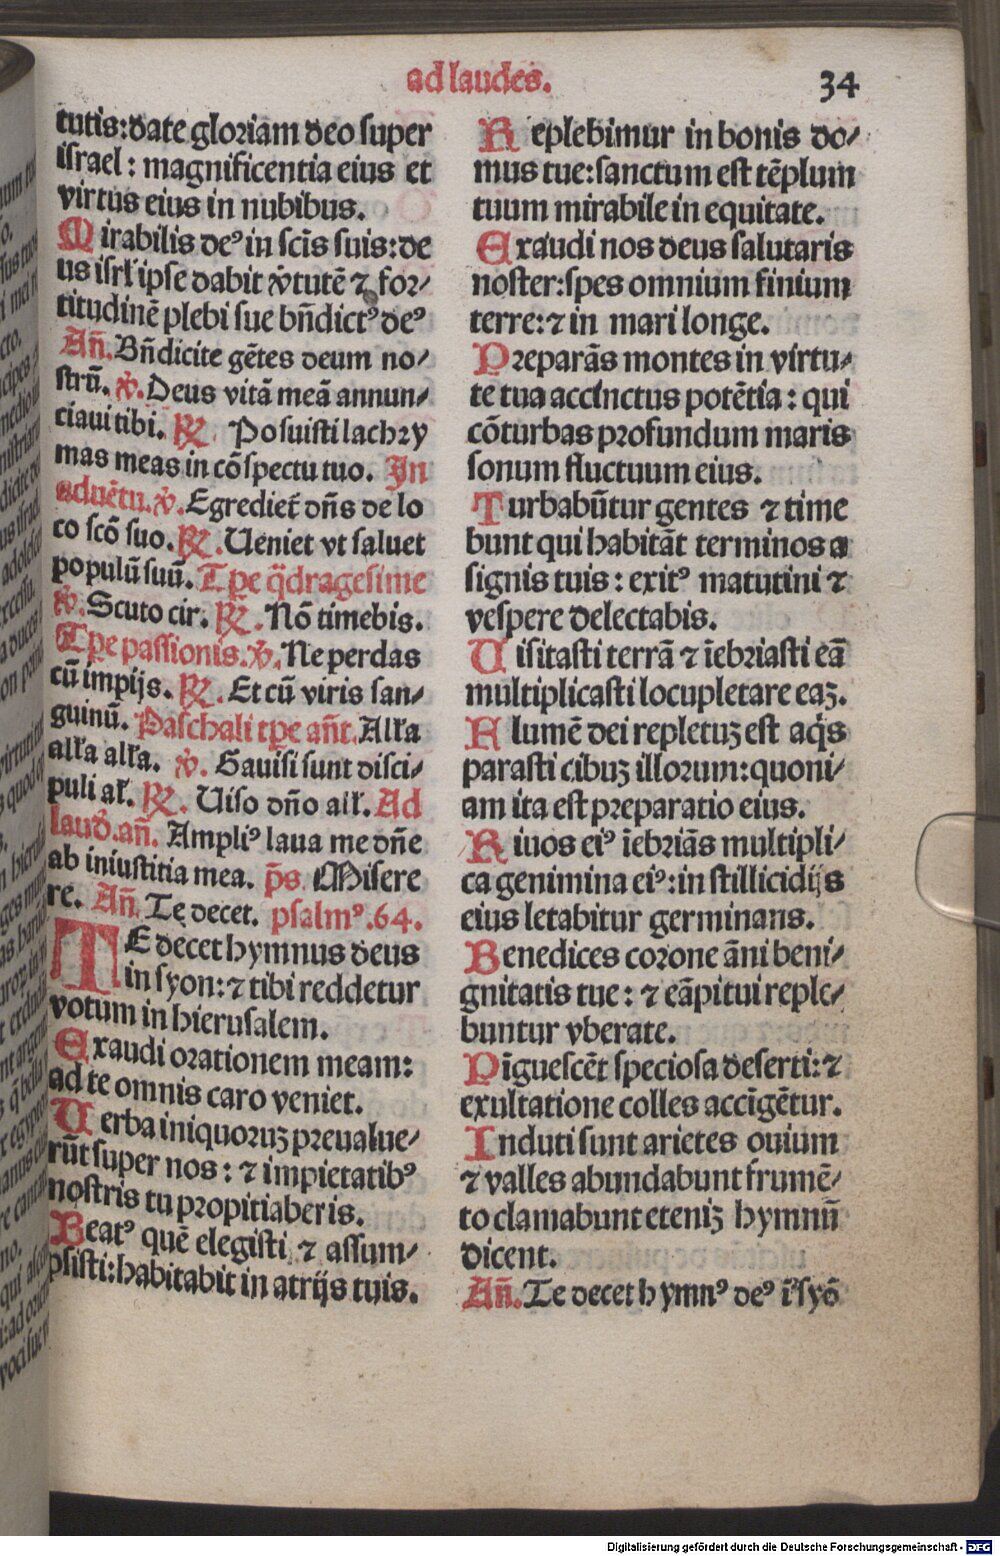 ad laudes.
34
tutis:date gloriam deo super
israel: magnificentia eius et
virtus eius in nubibus.
Mirabilis deꝰ in scīs suis:de
us isrł ipse dabit v̊tutē ⁊ for⸗
titudinē plebi sue bn̄dictꝰ deꝰ
An̄. Bn̄dicite gētes deum no⸗
strū. ℣. Deus vitā meā annun⸗
ciaui tibi. ℟. Posuisti lachꝛy
mas meas in cōspectu tuo. In
aduētu. ℣. Egrediet᷑ dn̄s de lo
co scō suo. ℟. Ueniet vt saluet
populū suū. Tp̄e q̄dragesime
℣. Scuto cir. ℟. Nō timebis.
Tp̄e passionis. ℣. Ne perdas
cū impijs. ℟. Et cū viris san⸗
guinū. Paschali tp̄e an̄t. Alła
alła alła. ℣. Gauisi sunt disci⸗
puli ał. ℟. Uiso dn̄o ałł. Ad
laud̄. an̄. Ampliꝰ laua me dn̄e
ab iniustitia mea. p̄s. Misere
re. An̄. Te decet. psalmꝰ. 64.
TE decet hymnus deus
in syon:⁊ tibi reddetur
votum in hierusalem.
Exaudi orationem meam:
ad te omnis caro veniet.
Uerba iniquoruꝫ preualue⸗
rūt super nos: ⁊ impietatibꝰ
nostris tu propitiaberis.
Beatꝰ quē elegisti ⁊ assum⸗
psisti:habitabit in atrijs tuis.
Replebimur in bonis do⸗
mus tue:sanctum est tēplum
tuum mirabile in equitate.
Exaudi nos deus salutaris
noster:spes omnium finium
terre:⁊ in mari longe.
Preparās montes in virtu⸗
te tua accinctus potētia: qui
cōturbas pꝛofundum maris
sonum fluctuum eius.
Turbabūtur gentes ⁊ time
bunt qui habitāt terminos a
signis tuis: exitꝰ matutini ⁊
vespere delectabis.
Uisitasti terrā ⁊ īebriasti eā
multiplicasti locupletare eaꝫ.
Flumē dei repletuꝫ est aq̄s
parasti cibuꝫ illorum:quoni⸗
am ita est preparatio eius.
Riuos eiꝰ īebriās multipli⸗
ca genimina eiꝰ:in stillicidijs
eius letabitur germinans.
Benedices coꝛone āni beni⸗
gnitatis tue: ⁊ cāpi tui reple⸗
buntur vberate.
Pīguescēt speciosa deserti:⁊
exultatione colles accīgētur.
Induti sunt arietes ouium
⁊ valles abundabunt frumē⸗
to clamabunt eteniꝫ hymnū
dicent.
An̄. Te decet hymnꝰ deꝰ ī syō